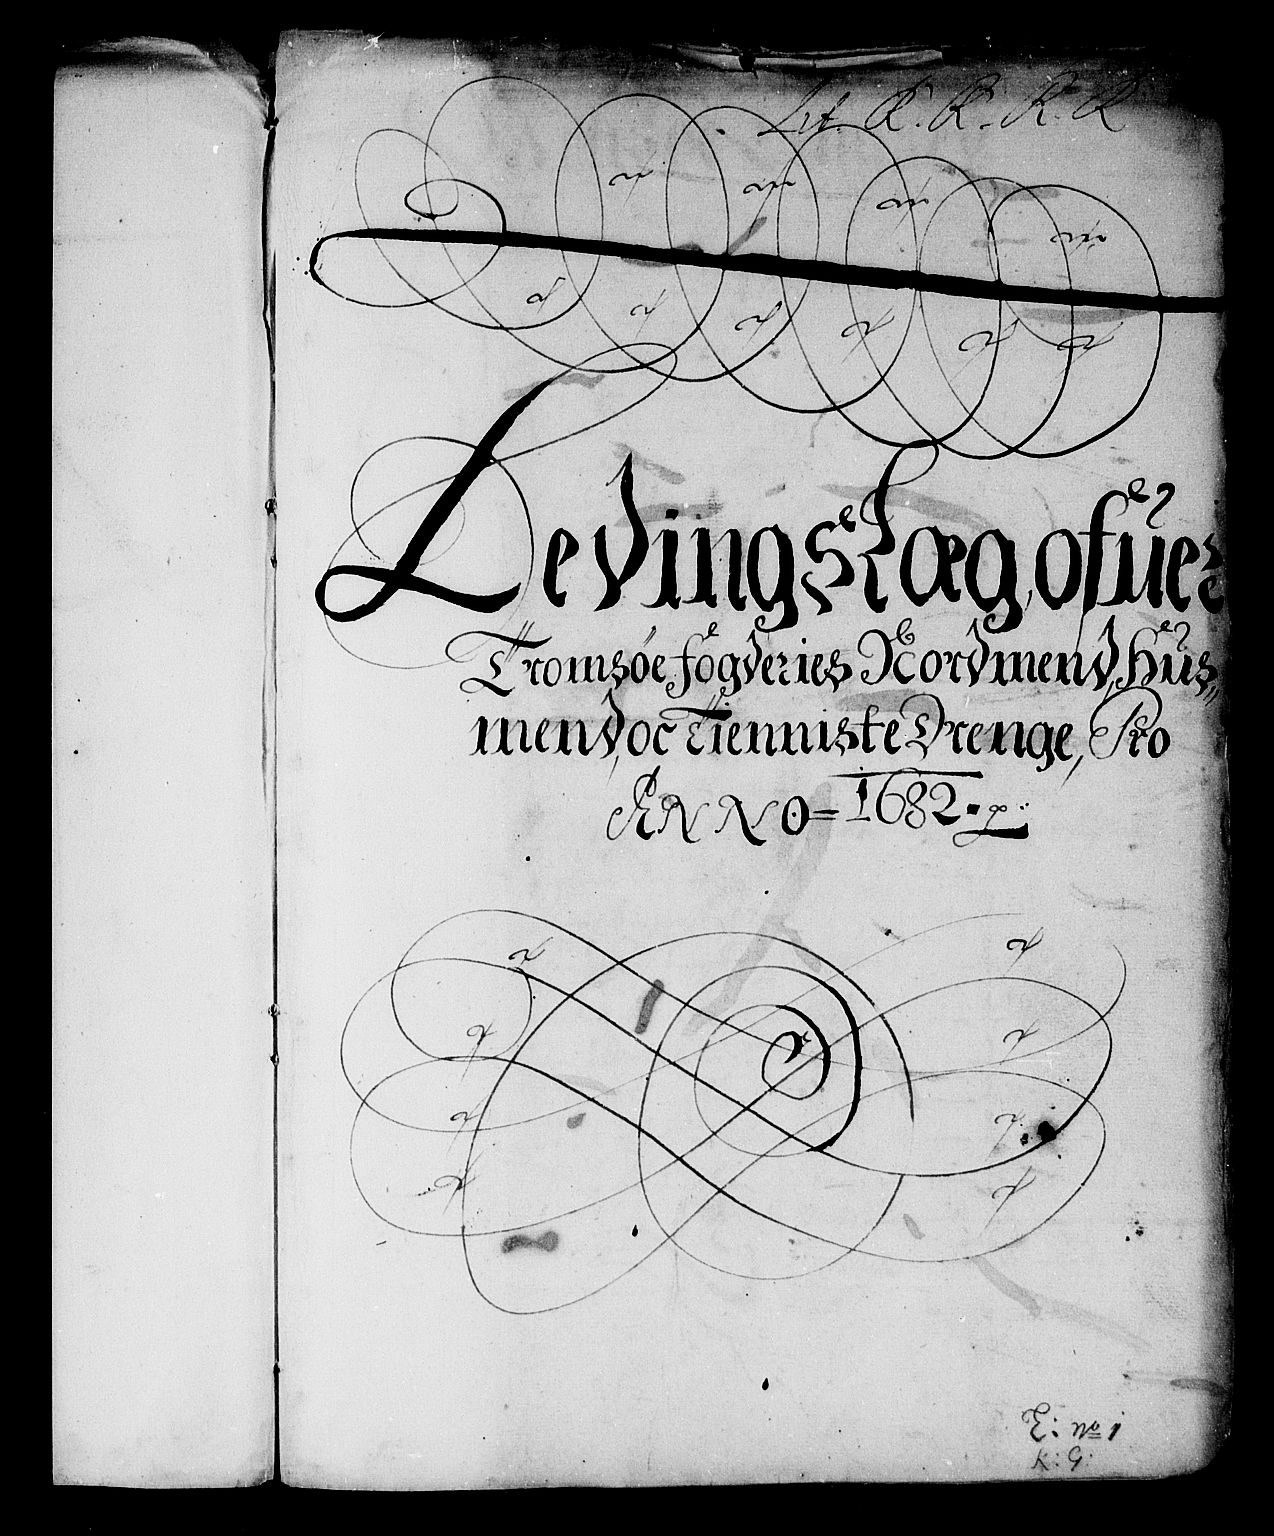 Lit. R. R. R. R
Levings Læg ofuer
Tromsøe fogderies Nordmend, Hus
mend, oc Tienniste Drenge, Pro
ANNO = 1682.
E: no 1
K: G.